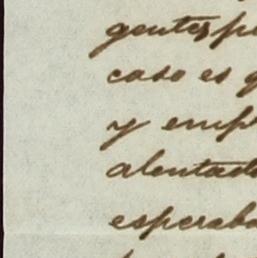 gentes p
caso es q
y emp
alentad
esperaba